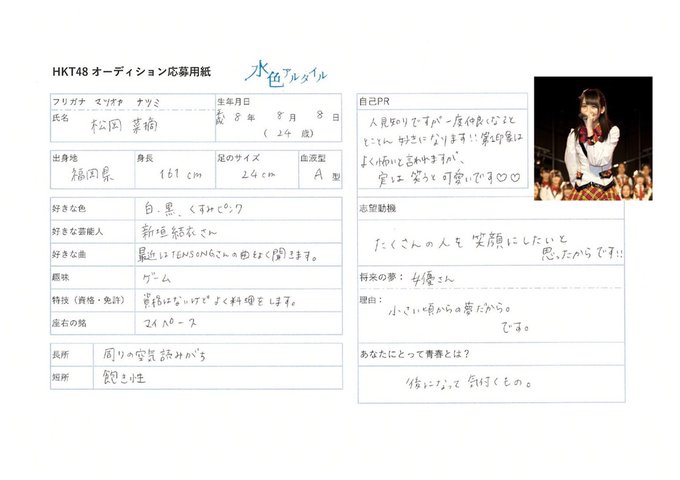 HKT48 オーディション応募用紙
水色アルタイル
フリガナ マツオカ ナツミ
氏名 松岡 菜摘
生年月日
平成 8 年 8 月 8 日
( 24 歳)
出身地 福岡県
身長 161 cm
足のサイズ 24 cm
血液型 A 型
好きな色 白、黒、くすみピンク
好きな芸能人 新垣結衣さん
好きな曲 最近はTENSONGさんの曲をよく聞きます。
趣味 ゲーム
特技（資格・免許） 資格はないけどよく料理をします。
座右の銘 マイペース
長所 周りの空気読みがち
短所 飽き性
自己PR
人見知りですが一度仲良くなると
とことん好きになります!! 第1印象は
よく怖いと言われますが、
実は笑うと可愛いです♡♡
志望動機
たくさんの人を笑顔にしたいと
思ったからです!!
将来の夢： 女優さん
理由： 小さい頃からの夢だから。
です。
あなたにとって青春とは？
後になって気付くもの。